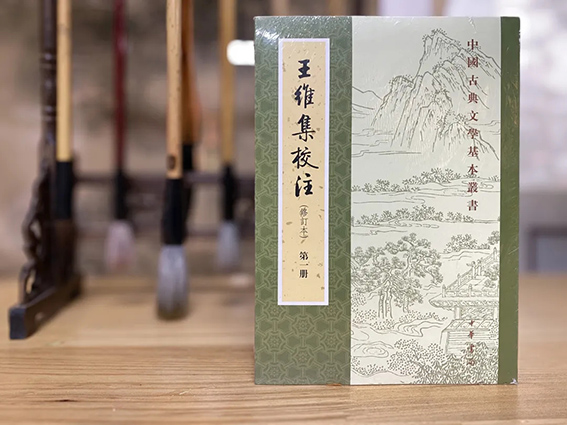 王維集校注
(修訂本)
第一册
中國古典文學基本叢書
中華書局